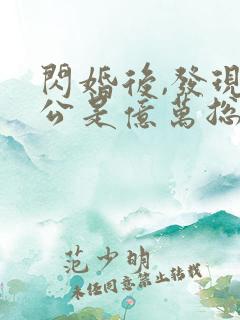 閃婚後,發現
公是億萬總
范少明
未經同意禁止轉載